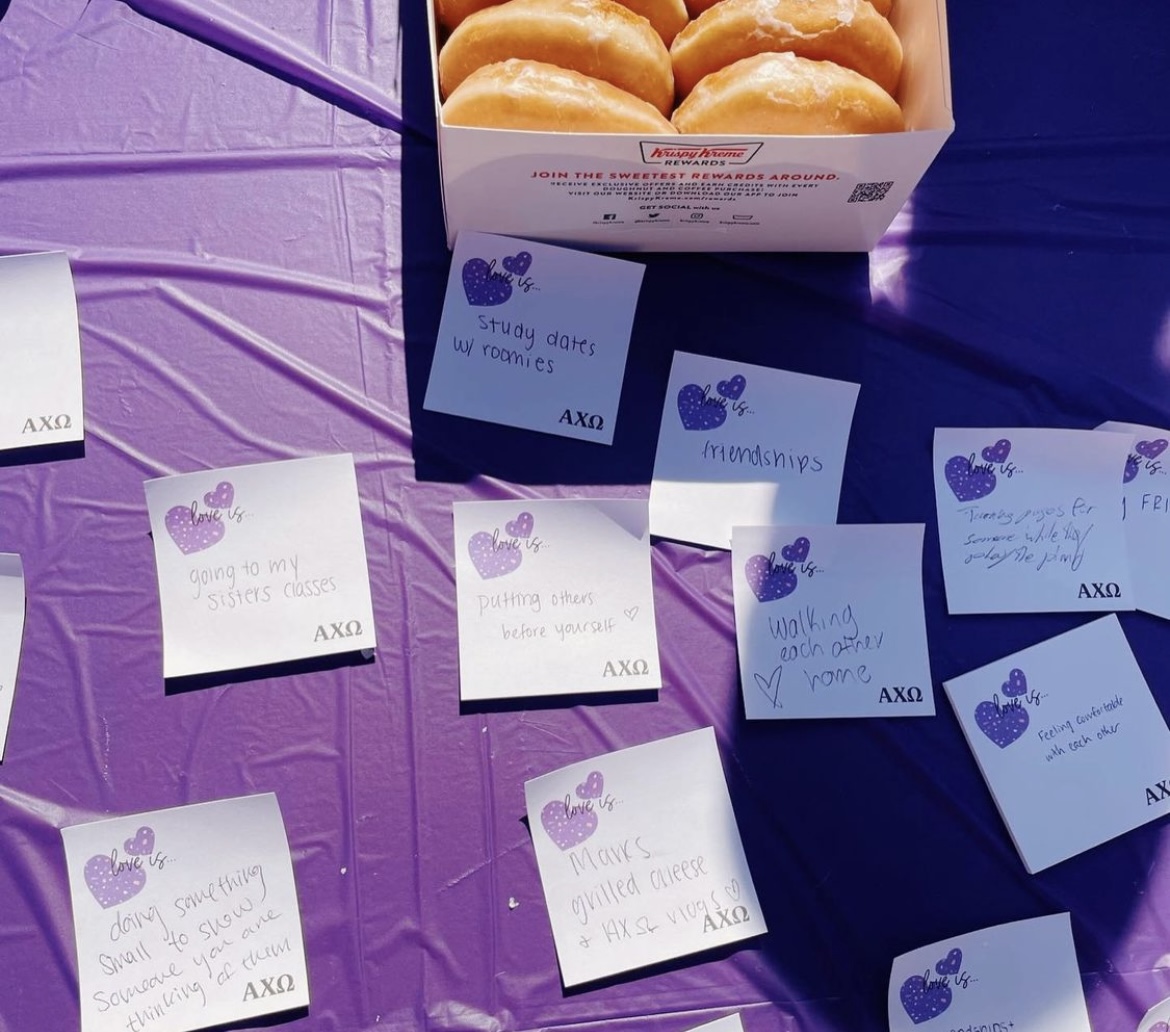 Krispy Kreme
REWARDS
JOIN THE SWEETEST REWARDS AROUND.
RECEIVE EXCLUSIVE OFFERS AND EARN CREDITS WITH EVERY
DOUGHNUT AND COFFEE PURCHASE!
VISIT OUR WEBSITE OR DOWNLOAD OUR APP TO JOIN
KrispyKreme.com/rewards
GET SOCIAL with us
love is...
study dates
w/ roomies
ΑΧΩ
love is...
friendships
ΑΧΩ
love is...
for
someone while they
ΑΧΩ
love is...
FRI
love is...
going to my
sisters classes
ΑΧΩ
love is...
putting others
before yourself ♡
ΑΧΩ
love is...
Walking
each other
♡ home
ΑΧΩ
love is...
Feeling comfortable
with each other
ΑΧ
love is...
doing something
small to show
someone you are
thinking of them
ΑΧΩ
love is...
Marks
grilled cheese
+ AXΩ vlogs ♡
ΑΧΩ
love is...